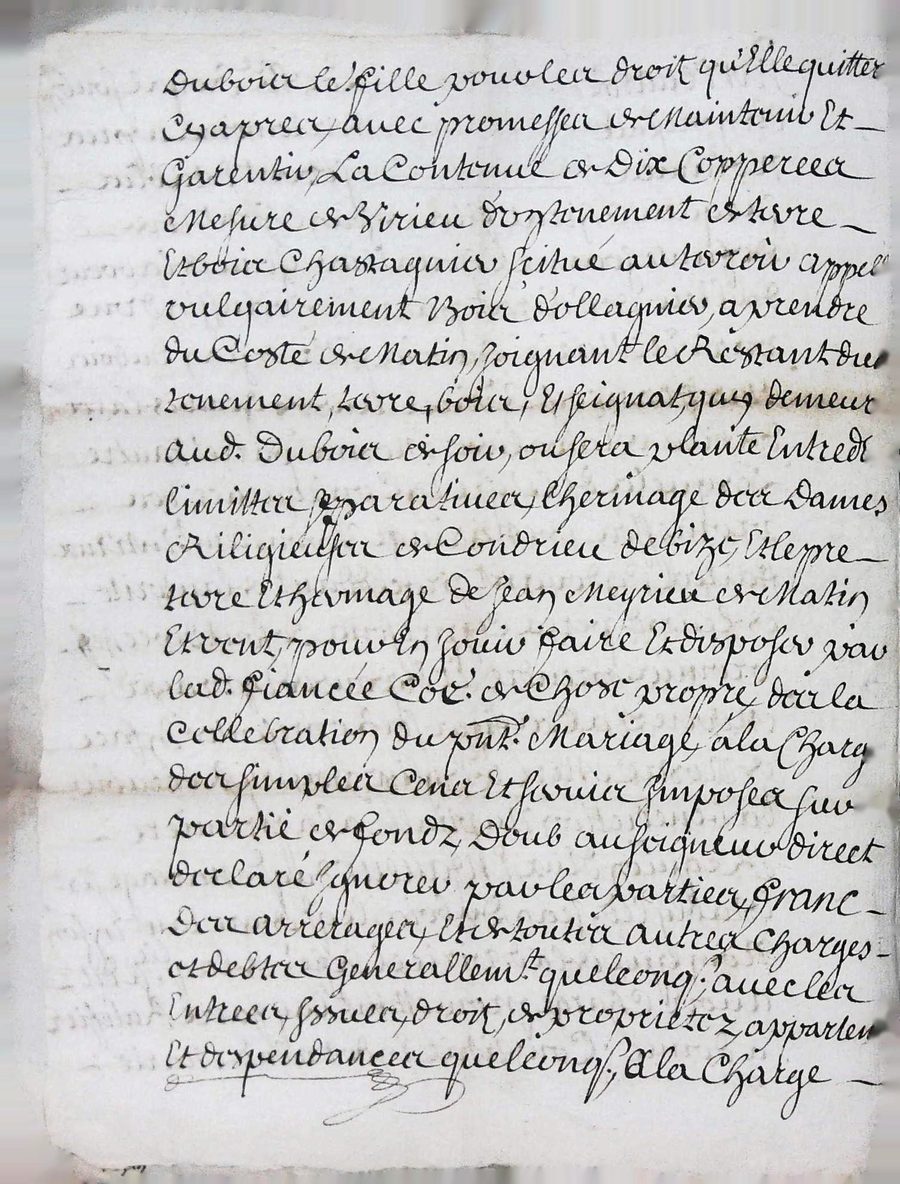 Dubois le^. fille pour les droit qu'Elle quitter
Cyapres, avec promesses de Maintenir Et
Garentir, La Contenue de Dix Copperees
Mesure de Virieu d'un tenement de terre
Et bois Chastagnier scitué au terroir appel^é
vulgairement Bois d'ollagnier, a prendre
du Costé de Matin, Joignant le Restant du
tenement, terre, bois, Et seignat, quy demeur
aud. Dubois de soir, ou sera planté Entredx
limittes separatives, l'heritage des Dames
Riligieuses de Condrieu de bize, Et le pre
terre Et heritage de Jean Meyrieu de Matin
Et vent, pour En Jouir faire Et disposer par
lad. fiancée Coe. de Chose propre, dès la
Cellebration du pnt. Mariage, a la Charg
des simples Cens Et servis Imposes sur
partie de fondz, Doub au seigneur direct
declaré Ignorer par les parties, franc
des arrerages, Et de toutes autres Charges
et debtes Generallemt. quelconqs. avec les
Entrees, Issues, droit, de proprietez, apparten
Et despendances quelconqs., A la Charge